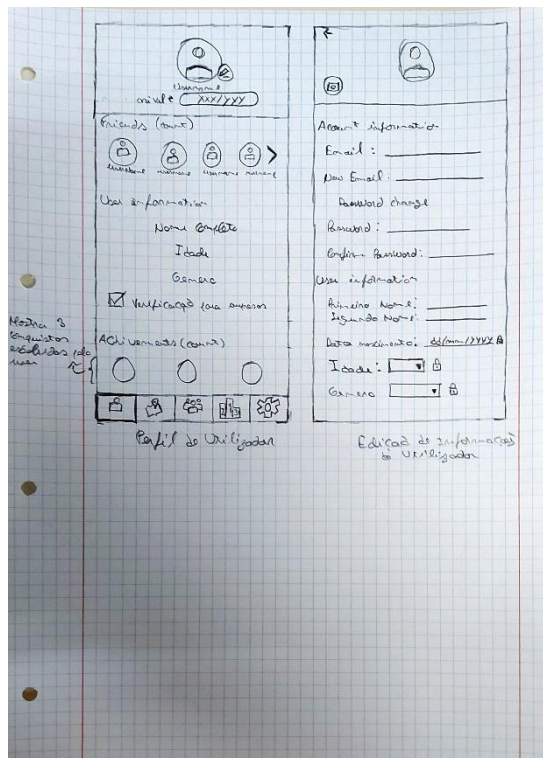 Username
nivel: XXX/YYY
Friends (count)
username username username username
User information
Nome Completo
Idade
Genero
Verificação para empresas
Achivements (count)
Mostra 3
conquistas
escolhidas pelo
user
Perfil de Utilizador
Account information
Email:
New Email:
Password change
Password:
Confirm Password:
User information
Primeiro Nome:
Segundo Nome:
Data nascimento: dd/mm/YYYY
Idade:
Genero
Edição de Informações
do Utilizador